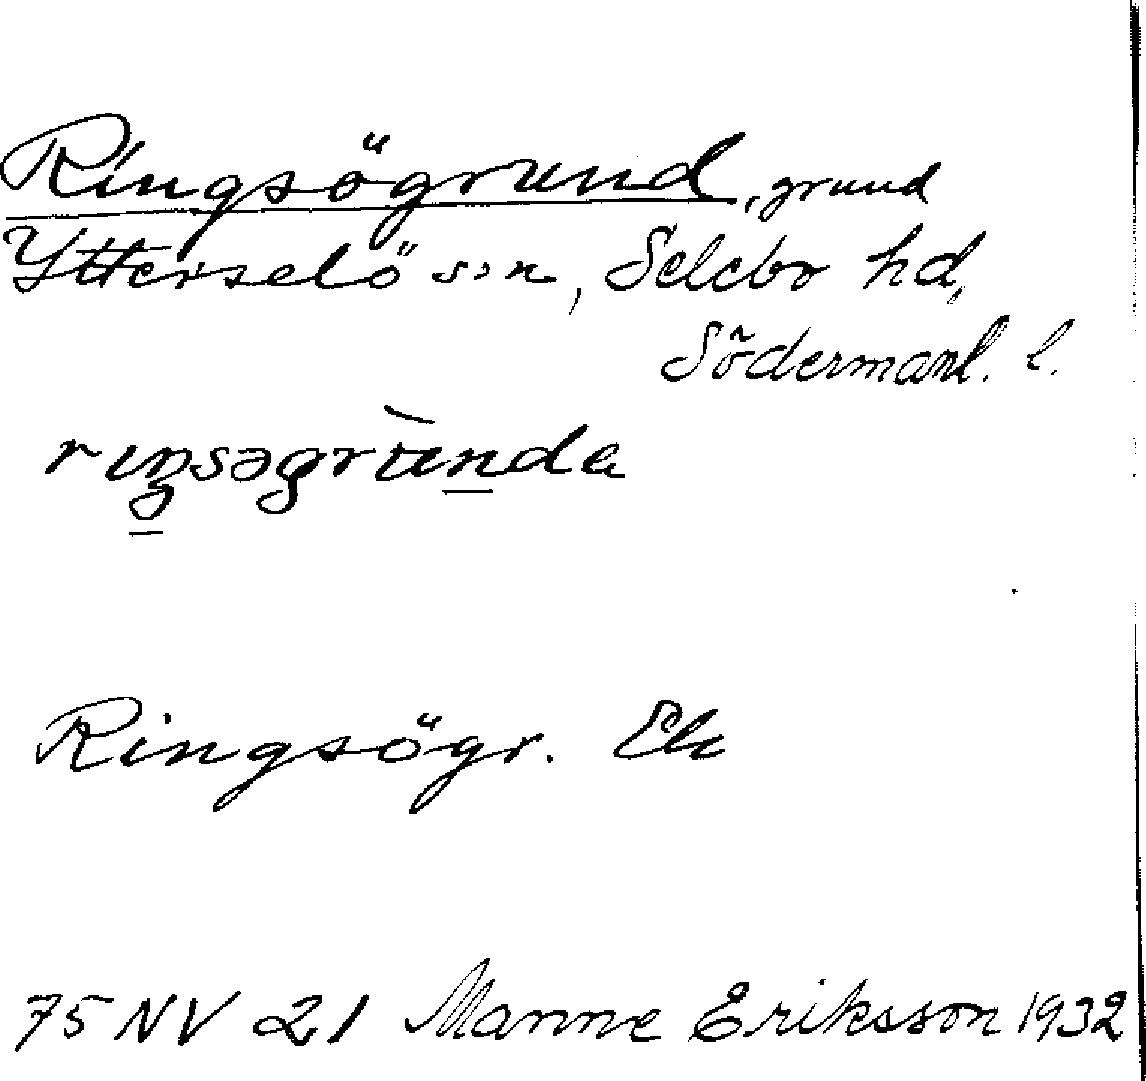 Ringsögrund, grund
Ytterselö s:n, Selebo hd,
Södermanl. l.
rıŋsəgrùnda
Ringsögr. Ek
75 NV 21 Manne Eriksson 1932